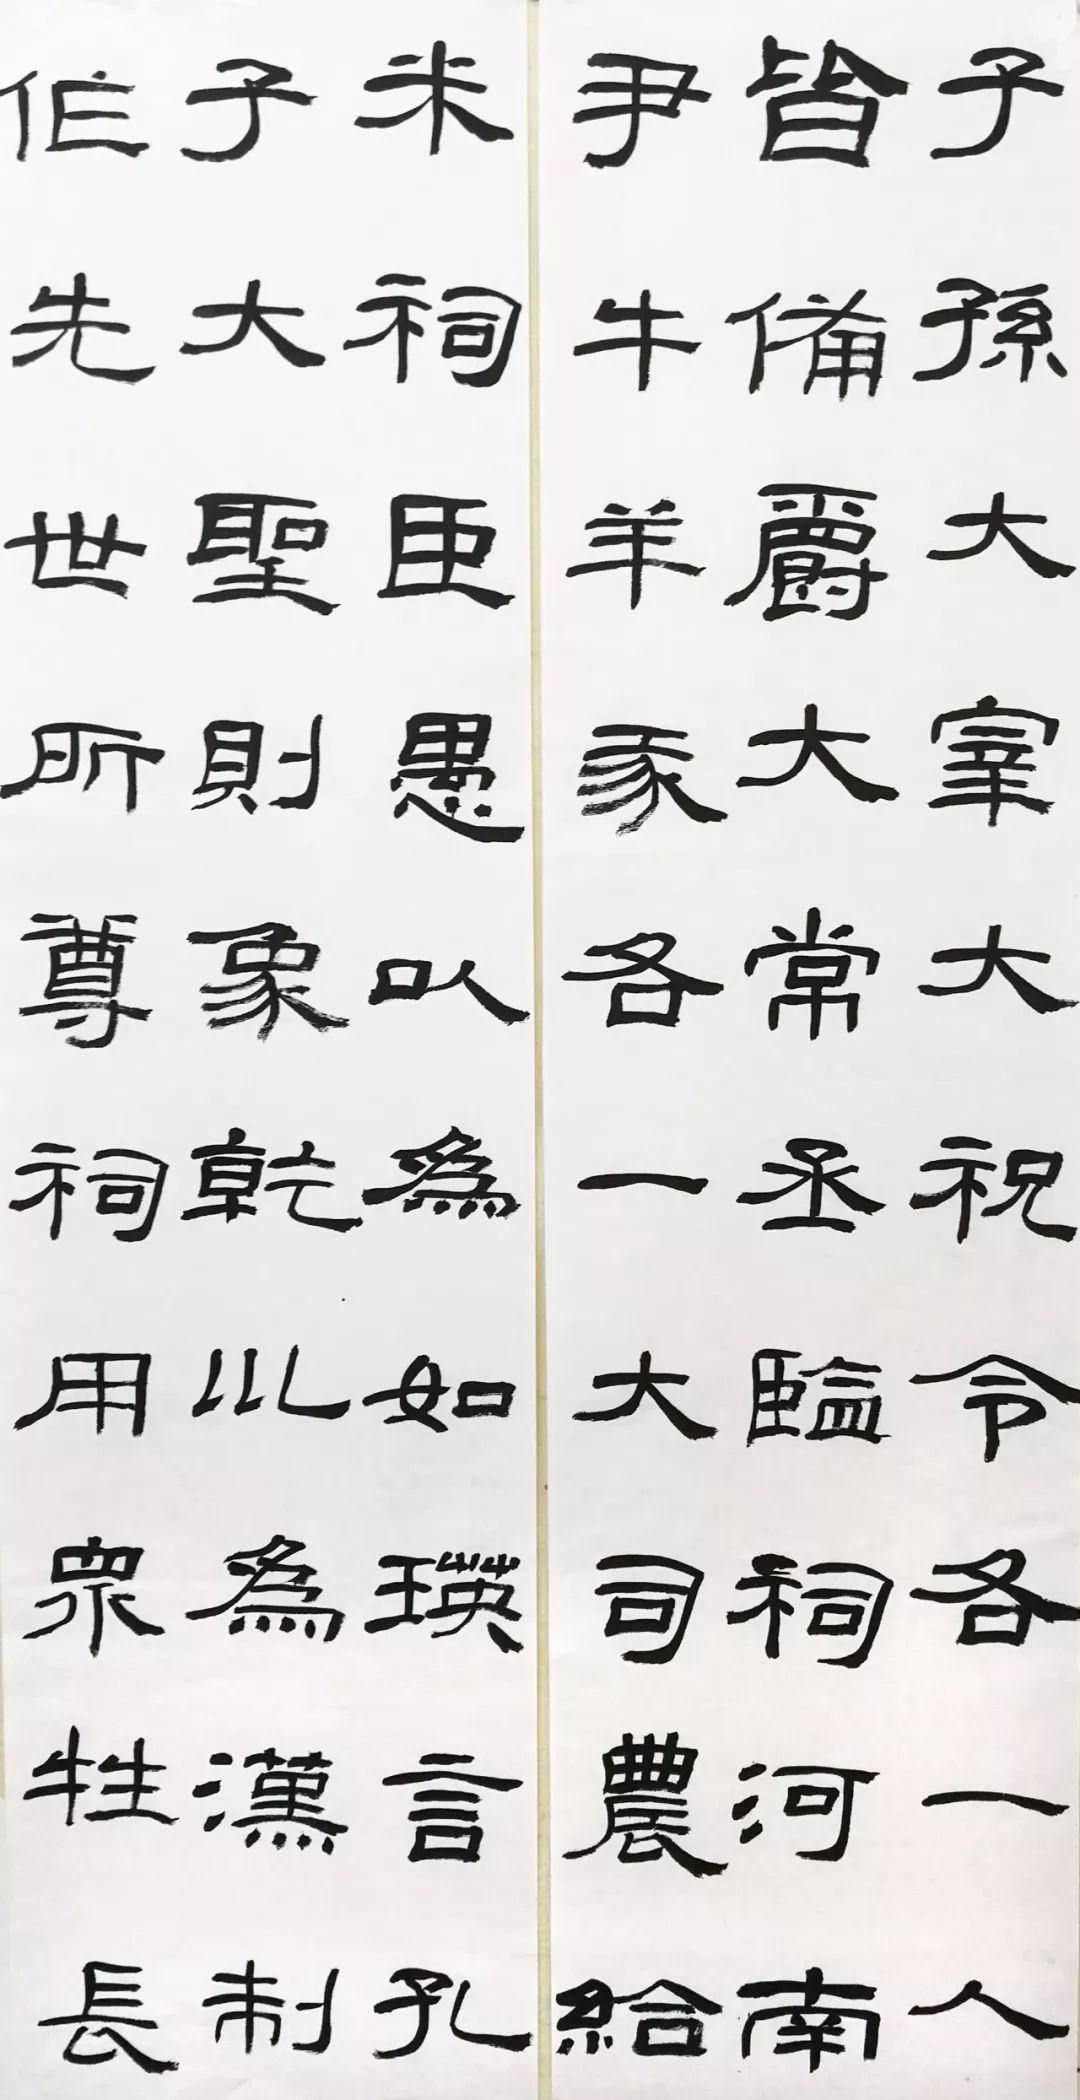 子孫大宰大祝令各一人
皆備爵大常丞臨祠河南
尹牛羊豕各一大司農給
米祠臣愚以為如瑛言孔
子大聖則象乾川為漢制
作先世所尊祠用眾牲長